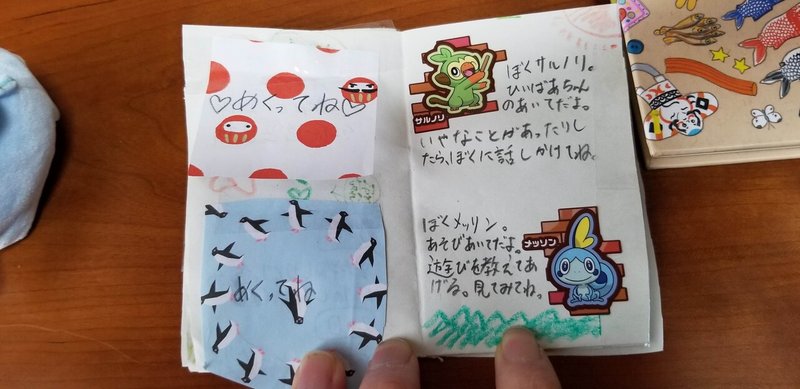 ♡めくってね♡
めくってね
ぼくサルノリ。
ひいばあちゃん
のあいてだよ。
サルノリ
いやなことがあったりし
たら、ぼくに話しかけてね。
ぼくメッリン。
あそびあいてだよ。
遊びを教えてあ
げる。見てみてね。
メッソン